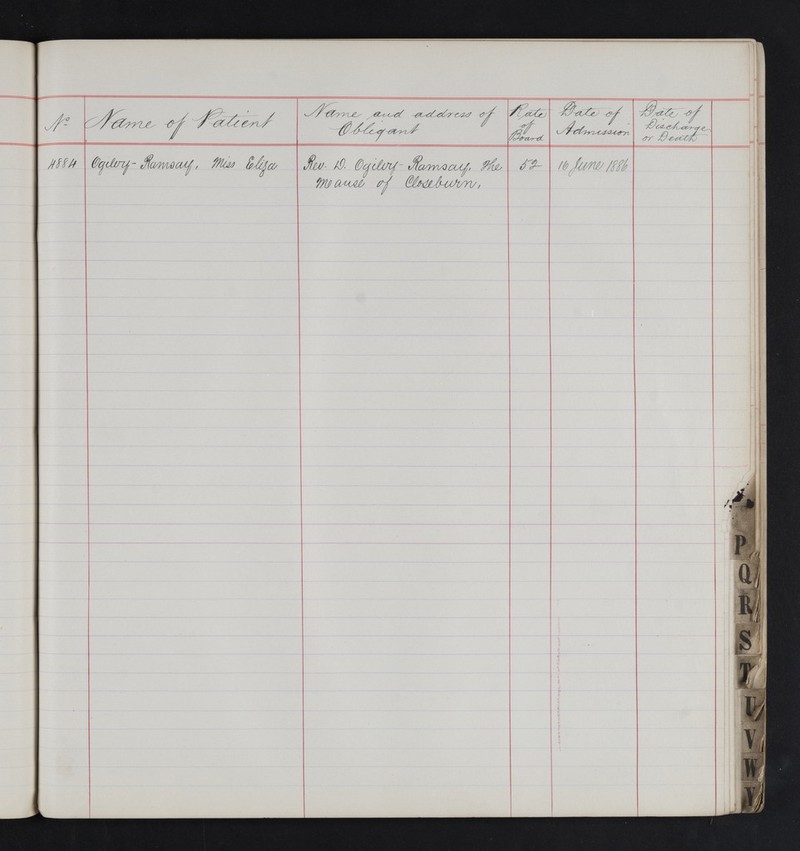 No Name of Patient Name and address of Obligant Rate of Board Date of Admission Date of Discharge or Death
4884 Ogilvy-Ramsay, Miss Eliza Rev. D. Ogilvy-Ramsay, The 52 16 June 1886
Manse of Closeburn,
P
Q
R
S
T
U
V
W
Y